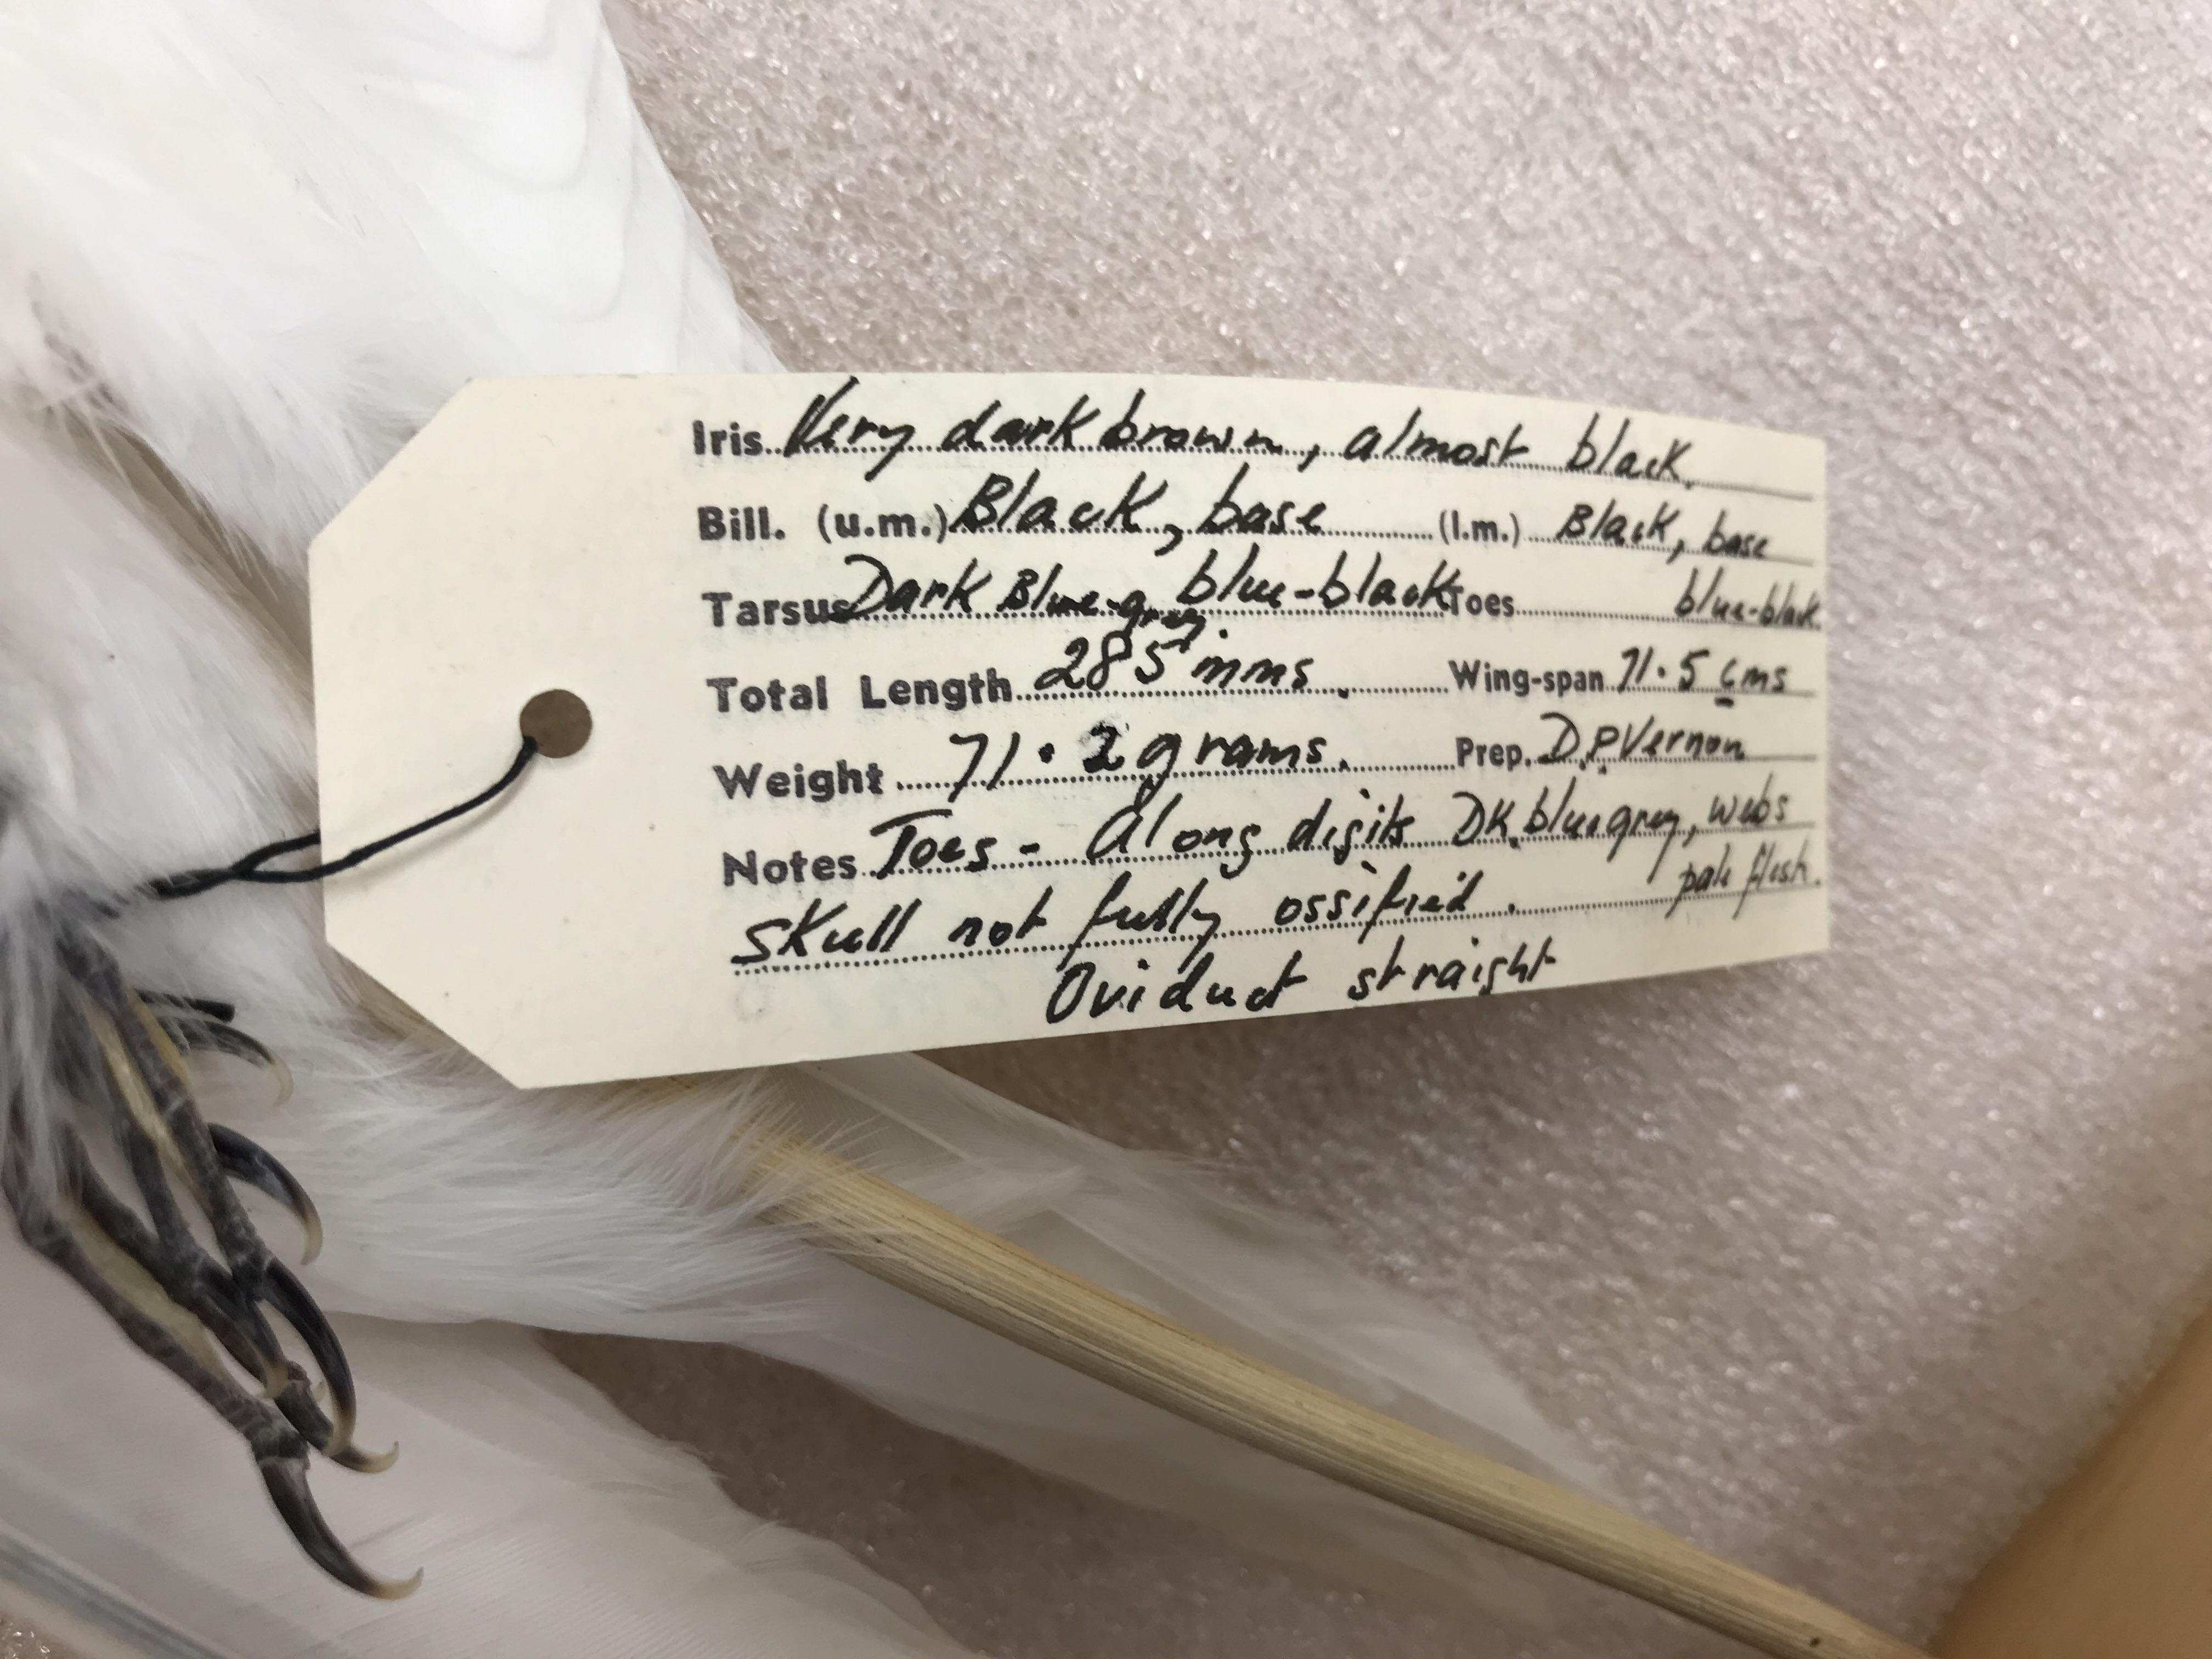 Iris Very dark brown, almost black.
Bill. (u.m.) Black, base (l.m.) Black, base
Tarsus Dark Blue-grey. blue-black Toes blue-black
Total Length 285 mms. Wing-span 71.5 cms
Weight 71.2 grams. Prep. D.P. Vernon
Notes Toes - Along digits DK bluegrey, webs
Skull not fully ossified. pale flesh.
Oviduct straight